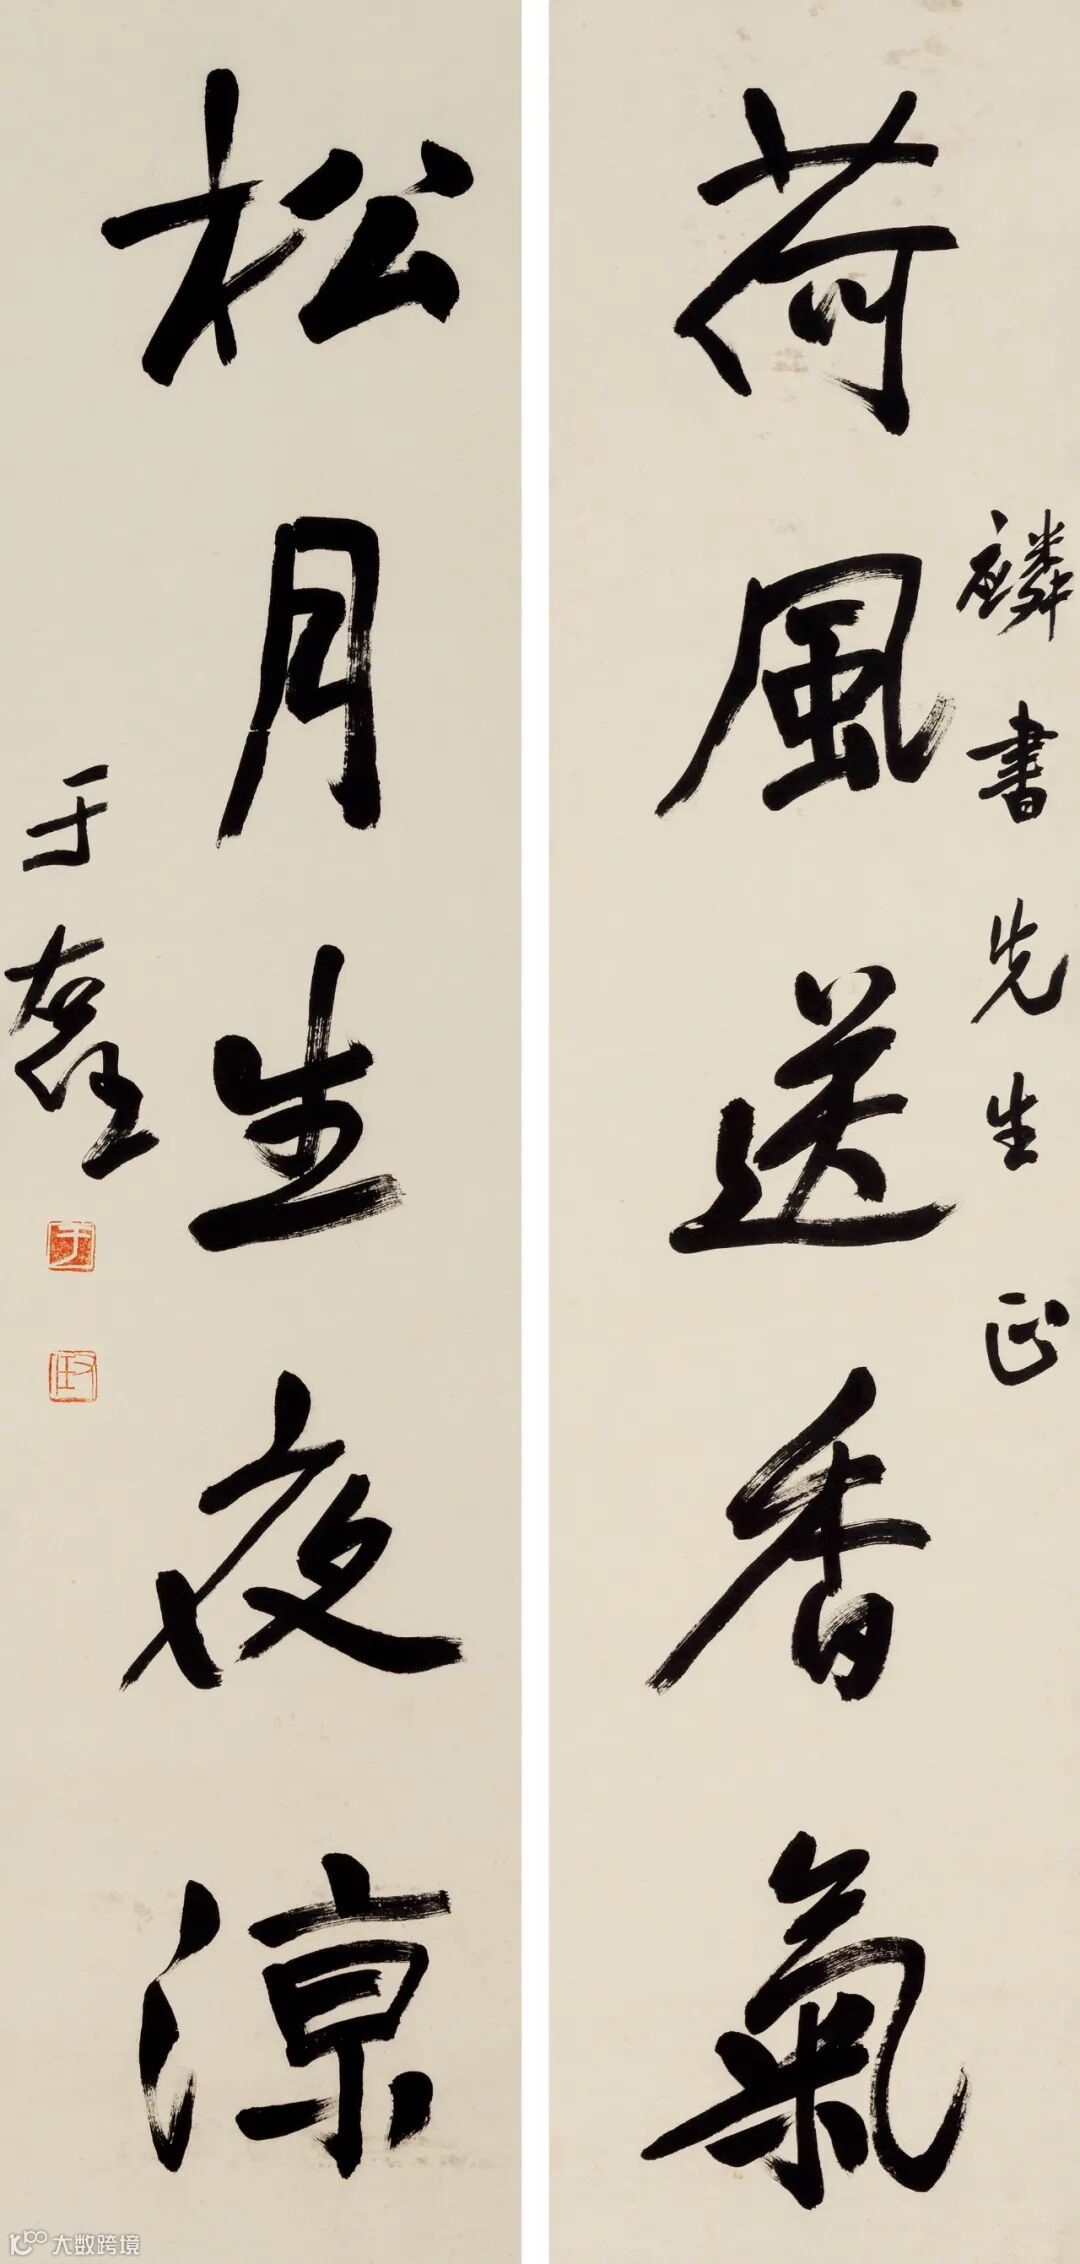 麟書先生正
荷風送香氣
松月生夜涼
于右任
大数跨境